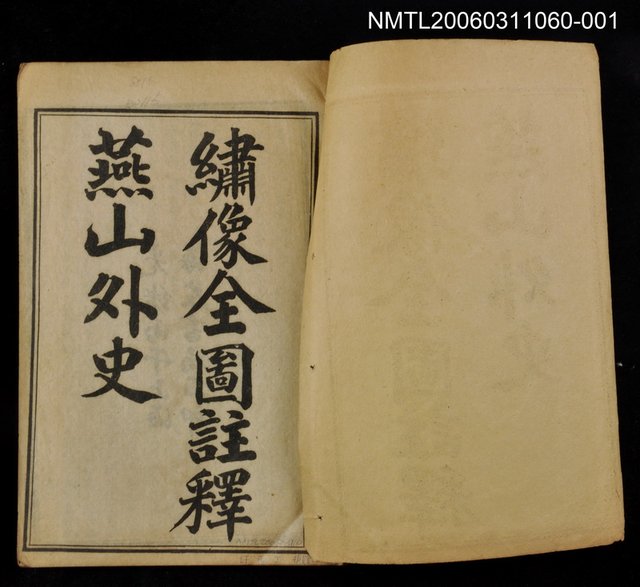 NMTL20060311060-001
繡像全圖註釋
燕山外史